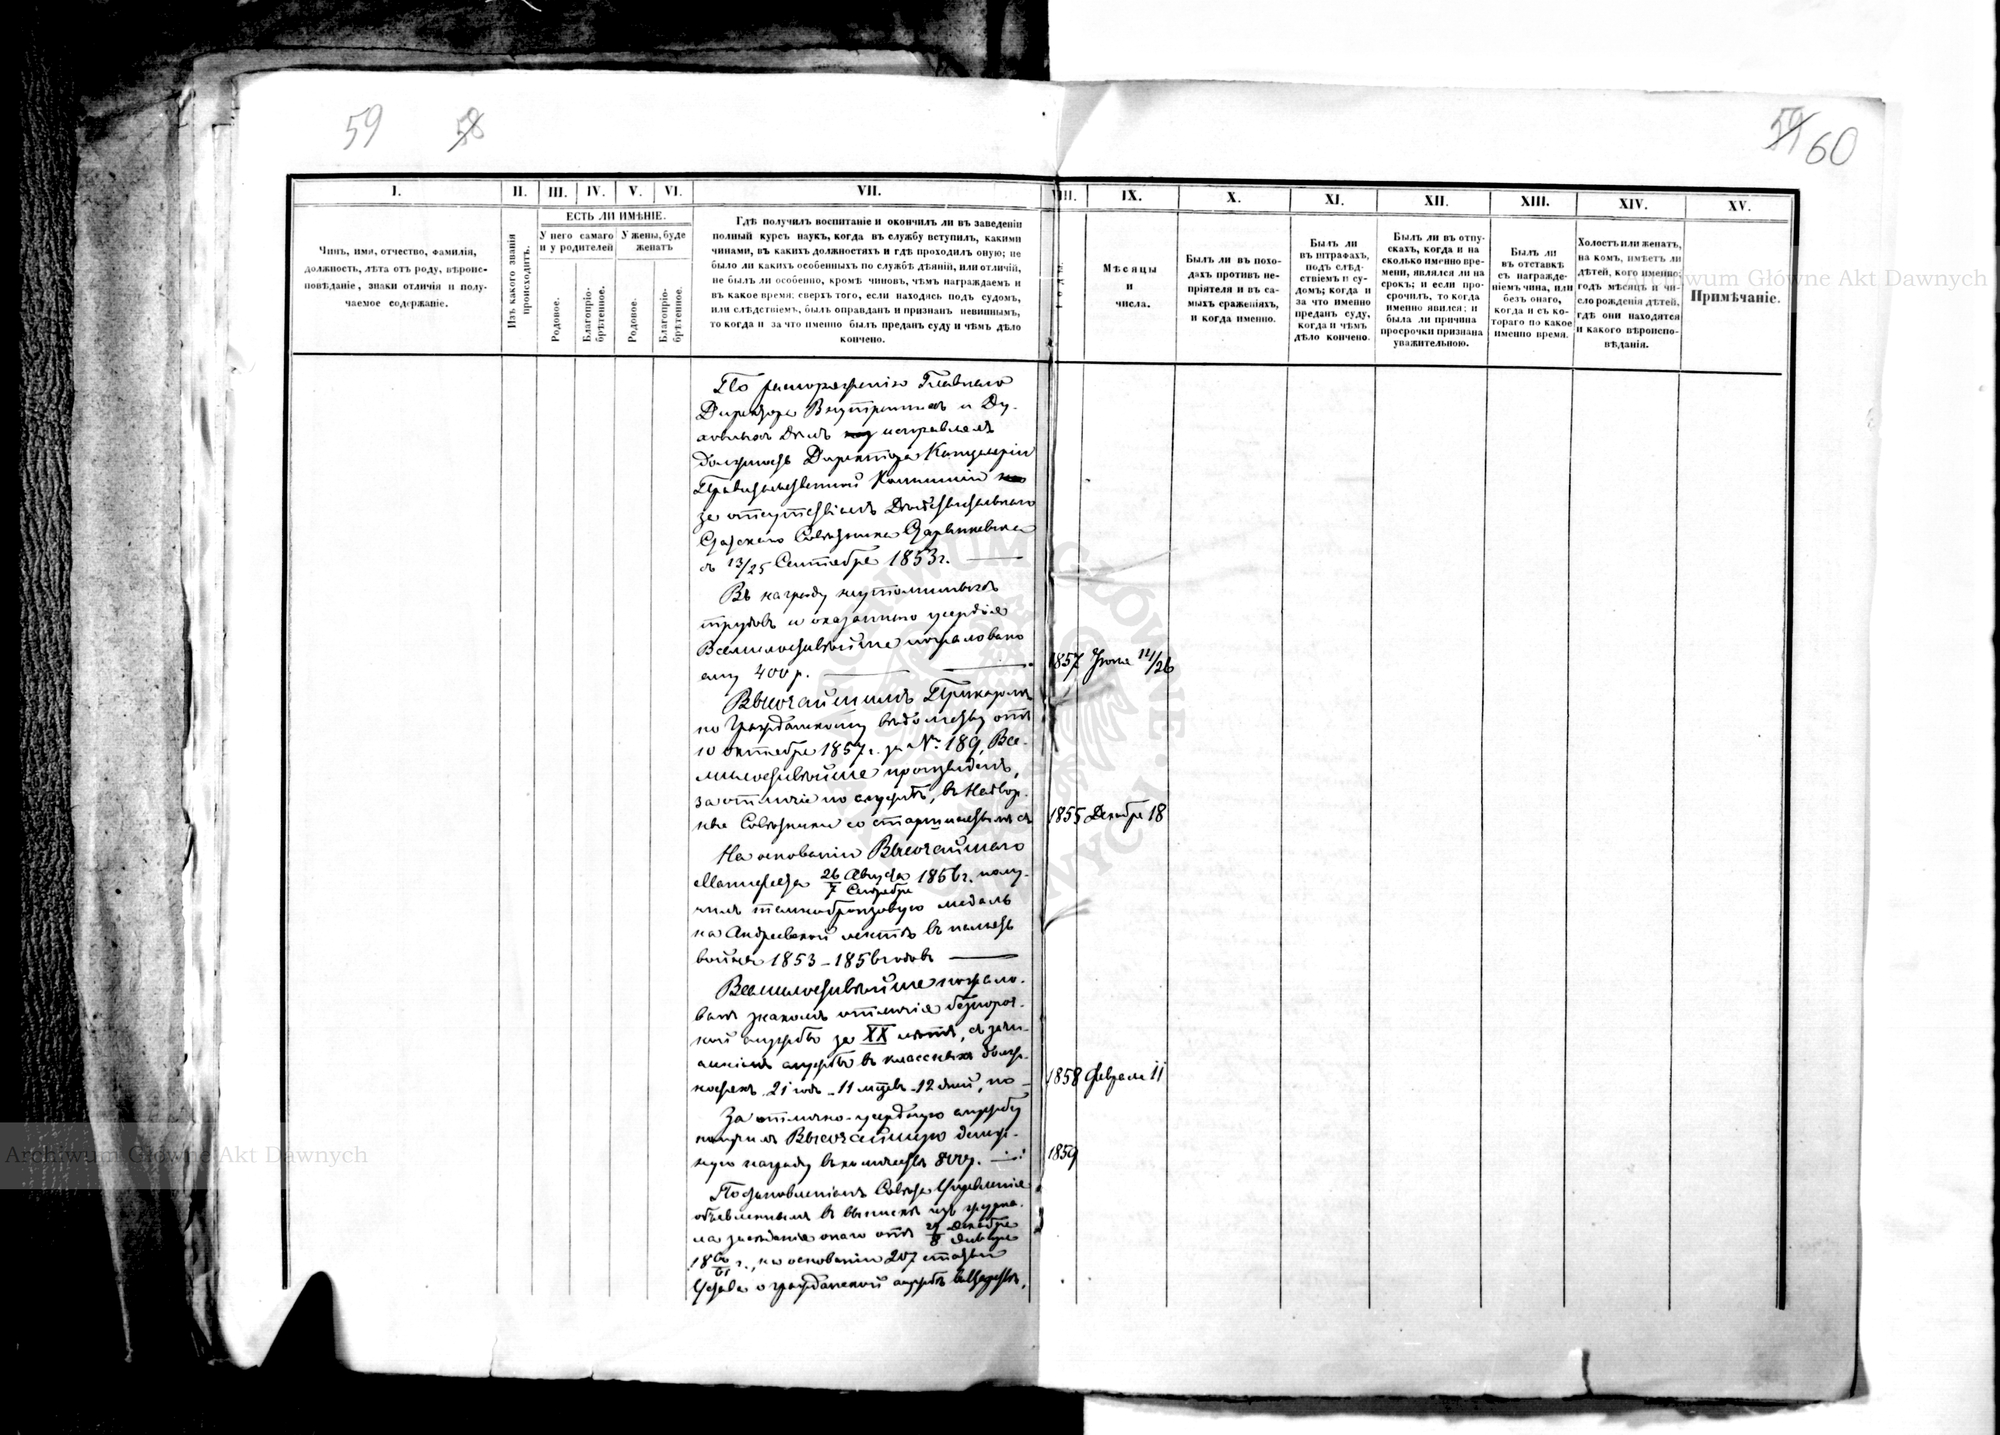 59
58
59
60
I.
II.
III.
IV.
V.
VI.
VII.
VIII.
IX.
X.
XI.
XII.
XIII.
XIV.
XV.
Чинъ, имя, отчество, фамилія,
должность, лѣта отъ роду, вѣроис-
повѣданіе, знаки отличія и полу-
чаемое содержаніе.
Изъ какого званія
происходитъ.
ЕСТЬ ЛИ ИМѢНІЕ.
У него самаго
и у родителей
У жены, буде
женатъ
Родовое.
Благопріо-
брѣтенное.
Родовое.
Благопріо-
брѣтенное.
Гдѣ получилъ воспитаніе и окончилъ ли въ заведеніи
полный курсъ наукъ, когда въ службу вступилъ, какими
чинами, въ какихъ должностяхъ и гдѣ проходилъ оную; не
было ли какихъ особенныхъ по службѣ дѣяній, или отличій,
не былъ ли особенно, кромѣ чиновъ, чѣмъ награждаемъ и
въ какое время; сверхъ того, если находясь подъ судомъ,
или слѣдствіемъ, былъ оправданъ и признанъ невиннымъ,
то когда и за что именно былъ преданъ суду и чѣмъ дѣло
кончено.
Мѣсяцы
и
числа.
Былъ ли въ похо-
дахъ противъ не-
пріятеля и въ са-
мыхъ сраженіяхъ,
и когда именно.
Былъ ли
въ штрафахъ,
подъ слѣд-
ствіемъ и су-
домъ; когда и
за что именно
преданъ суду,
когда и чѣмъ
дѣло кончено.
Былъ ли въ отпу-
скахъ, когда и на
сколько именно вре-
мени, являлся ли на
срокъ; и если про-
срочилъ, то когда
именно явился; и
была ли причина
просрочки признана
уважительною.
Былъ ли
въ отставкѣ
съ награжде-
ніемъ чина, или
безъ онаго,
когда и съ ко-
тораго по какое
именно время.
Холостъ или женатъ,
на комъ, имѣетъ ли
дѣтей, кого именно;
годъ мѣсяцъ и чи-
сло рожденія дѣтей,
гдѣ они находятся
и какого вѣроиспо-
вѣданія.
Примѣчаніе.
По распоряженію Главнаго
Директора Внутреннихъ и Ду-
ховныхъ Дѣлъ исправлялъ
должность Директора Канцеляріи
Правительственной Коммисіи
за отсутствіемъ Дѣйствительнаго
Статскаго Совѣтника
съ 13/25 Сентября 1853 г.
Въ награду неутомимыхъ
трудовъ и оказаннаго усердія
Всемилостивѣйше пожаловано
ему 400 р.
1857 Іюня 14/26
Высочайшимъ Приказомъ
по Гражданскому вѣдомству отъ
10 октября 1857 г. за № 189, Все-
милостивѣйше произведенъ,
за отличіе по службѣ, въ Надвор-
ные Совѣтники со старшинствомъ съ
1855 Декабря 18
На основаніи Высочайшаго
Манифеста 26 Августа/7 Сентября 1856 г. полу-
чилъ темнобронзовую медаль
на Андреевской лентѣ въ память
войны 1853–1856 годовъ
Всемилостивѣйше пожало-
ванъ знакомъ отличія безпороч-
ной службы за XX лѣтъ, съ
службы въ классныхъ долж-
ностяхъ 21 годъ - 11 мѣсяц. - 12 дней, по
1858 Февраля 11
За отлично-усердную службу
получилъ Высочайшую денеж-
ную награду въ количествѣ 800 р.
1859
Постановленіемъ Совѣта Управленія
объявленнымъ въ выпискѣ изъ журна-
ла засѣданія онаго отъ 27 Декабря/8 Января
1860/61 г., на основаніи 207 статьи
Устава о гражданской службѣ въ Царствѣ,
Archiwum Główne Akt Dawnych
Archiwum Główne Akt Dawnych
ARCHIWUM GŁÓWNE AKT DAWNYCH